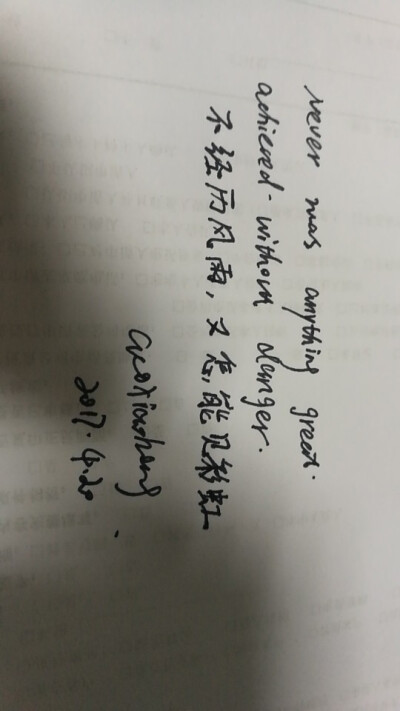 never was anything great.
achieved. without danger.
不经历风雨，又怎能见彩虹
2017.4.20